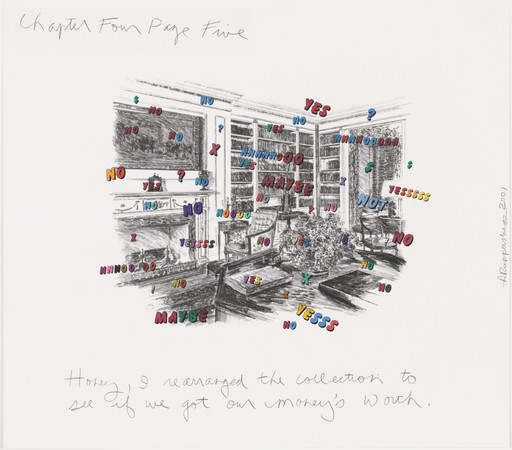 Chapter Four Page Five
$ NO NO YES ?
NO NO ? YES NO NNNNOOOOO
X NNNNNOOO YES $ $
NO ? YES NO MAYBE X YESSSSS
NO NO NO NOT
NOOOO ? NO
X YESSSS NO YES YES NO
NNNOOOOO NO
NO YES X NO
X
MAYBE NO YESSS
Honey, I rearranged the collection to
see if we got our money's worth.
A Ruppersberg 2001